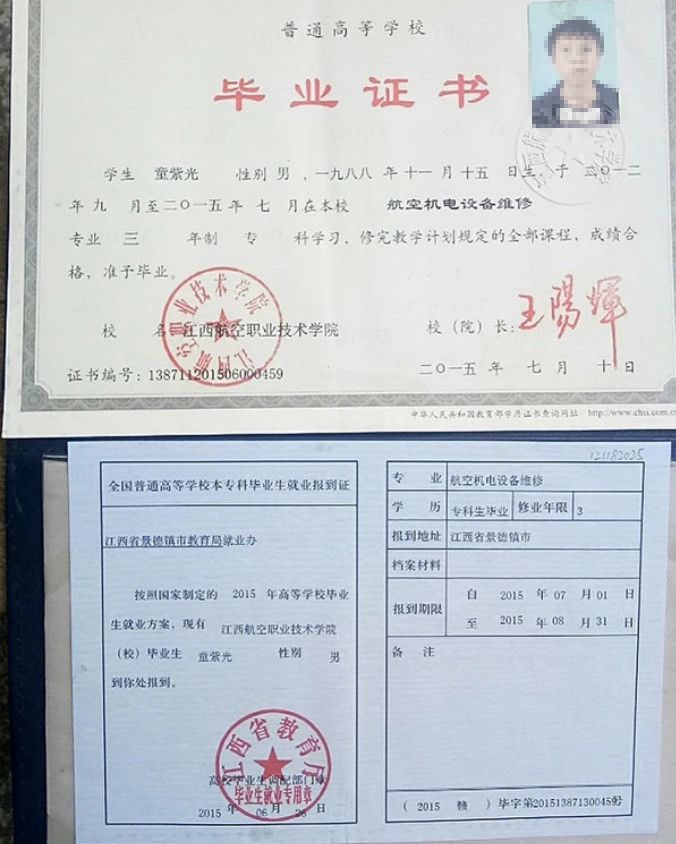 普通高等学校
毕业证书
学生 童紫光 性别 男 、一九八八 年 十一 月 十五 日生，于 二〇一二
年 九 月至二〇一五年 七 月在本校 航空机电设备维修
专业 三 年制 专 科学习，修完教学计划规定的全部课程，成绩合
格，准予毕业。
校 名 江西航空职业技术学院 校（院）长：王陽輝
江西航空职业技术学院
证书编号：138711201506000459 二〇一五 年 七 月 十 日
中华人民共和国教育部学历证书查询网址 http://www.chsi.com.cn
121182025
全国普通高等学校本专科毕业生就业报到证
江西省景德镇市教育局就业办
按照国家制定的 2015 年高等学校毕业
生就业方案，现有 江西航空职业技术学院
（校）毕业生 童紫光 性别 男
到你处报到。
江西省教育厅
高校毕业生调配部门章
毕业生就业专用章
2015 年 06 月 26 日
专 业 航空机电设备维修
学 历 专科生毕业 修业年限 3
报到地址 江西省景德镇市
档案材料
报到期限 自 2015 年 07 月 01 日
至 2015 年 08 月 31 日
备 注
（ 2015 赣 ）毕字第20151387130045号